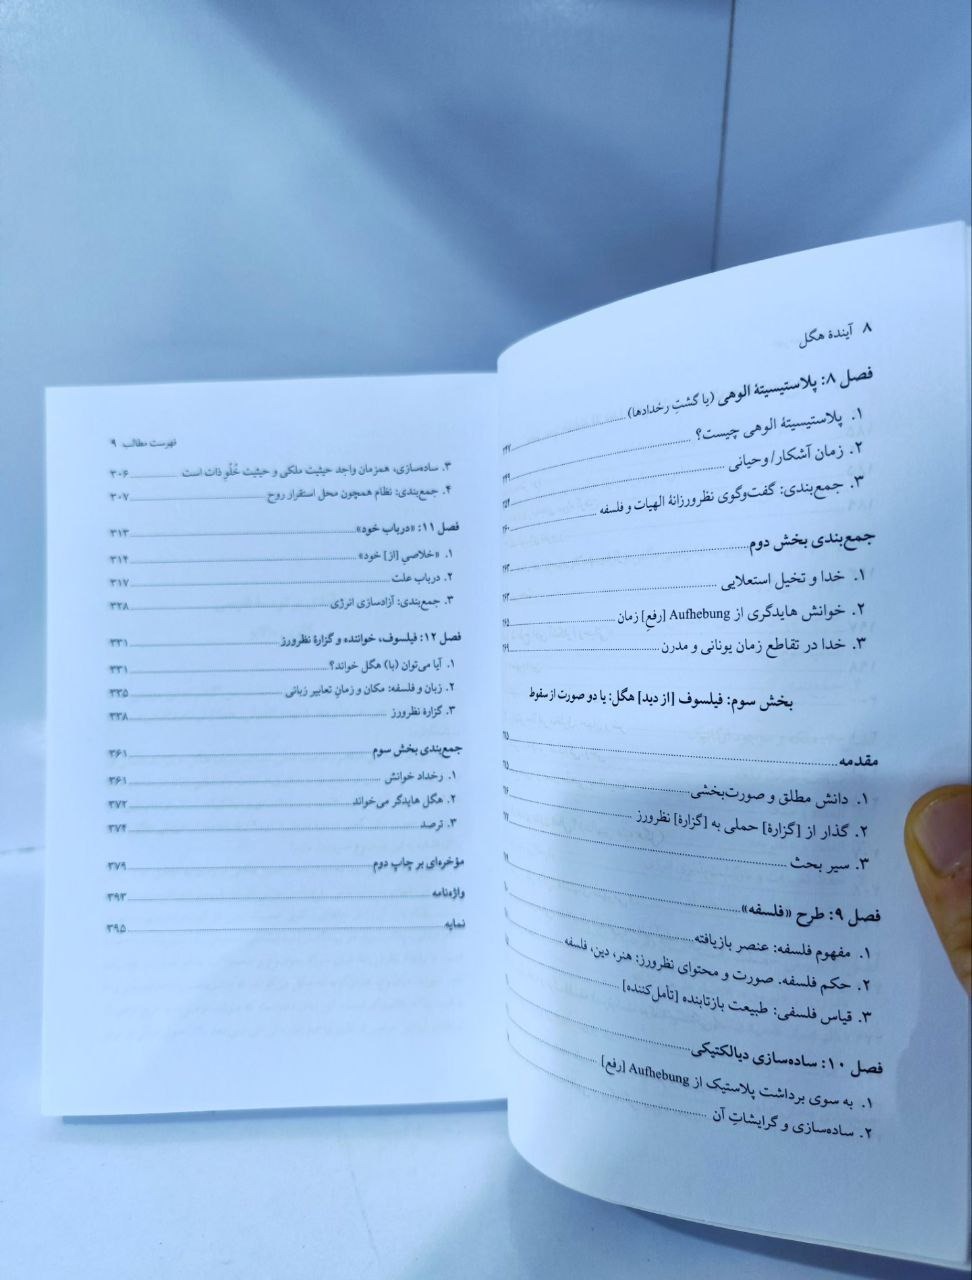 ۸ آیندهٔ هگل
فصل ۸: پلاستیسیتهٔ الوهی (یا گشتِ رخدادها)
۱. پلاستیسیتهٔ الوهی چیست؟
۲. زمان آشکار/ وحیانی
۳. جمع‌بندی: گفت‌وگوی نظرورزانهٔ الهیات و فلسفه
جمع‌بندی بخش دوم
۱. خدا و تخیل استعلایی
۲. خوانش هایدگری از Aufhebung [رفعِ] زمان
۳. خدا در تقاطع زمان یونانی و مدرن
بخش سوم: فیلسوف [از دید] هگل: یا دو صورت از سقوط
مقدمه
۱. دانش مطلق و صورت‌بخشی
۲. گذار از [گزارهٔ] حملی به [گزارهٔ] نظرورز
۳. سیر بحث
فصل ۹: طرح «فلسفه»
۱. مفهوم فلسفه: عنصر بازیافته
۲. حکم فلسفه. صورت و محتوای نظرورز: هنر، دین، فلسفه
۳. قیاس فلسفی: طبیعت بازتابنده [تأمل‌کننده]
فصل ۱۰: ساده‌سازی دیالکتیکی
۱. به سوی برداشت پلاستیک از Aufhebung [رفع]
۲. ساده‌سازی و گرایشاتِ آن
فهرست مطالب ۹
۳. ساده‌سازی، همزمان واجد حیثیت ملکی و حیثیت خُلُو ذات است ۳۰۶
۴. جمع‌بندی: نظام همچون محل استقرار روح ۳۰۷
فصل ۱۱: «درباب خود» ۳۱۳
۱. «خلاصیِ [از] خود» ۳۱۴
۲. درباب علت ۳۱۷
۳. جمع‌بندی: آزادسازی انرژی ۳۲۸
فصل ۱۲: فیلسوف، خواننده و گزارهٔ نظرورز ۳۳۱
۱. آیا می‌توان (با) هگل خواند؟ ۳۳۱
۲. زبان و فلسفه: مکان و زمانِ تعابیر زبانی ۳۳۵
۳. گزارهٔ نظرورز ۳۳۸
جمع‌بندی بخش سوم ۳۶۱
۱. رخداد خوانش ۳۶۱
۲. هگل هایدگر می‌خواند ۳۷۲
۳. ترصد ۳۷۴
مؤخره‌ای بر چاپ دوم ۳۷۹
واژه‌نامه ۳۹۳
نمایه ۳۹۵